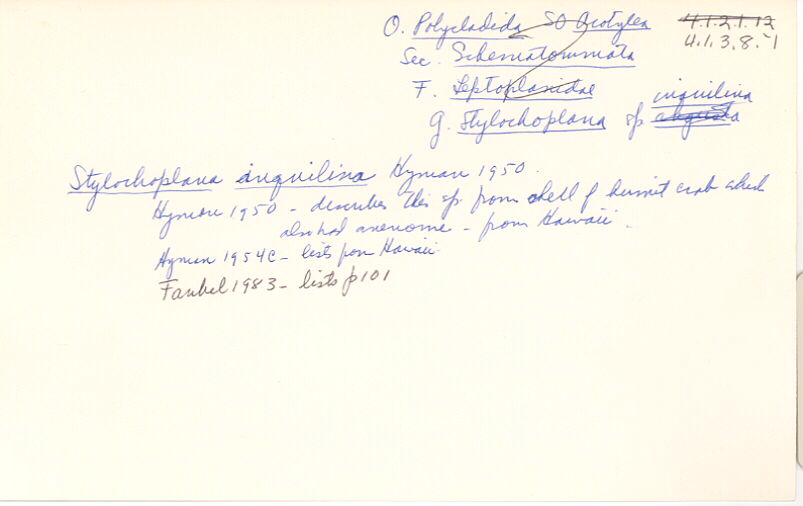 O. Polycladida SO Acotylea 4.1.2.1.12
4.1.3.8.-1
Sec. Schematommata
F. Leptoplanidae
inquilina
g. Stylochoplana sp angusta
Stylochoplana inquilina Hyman 1950.
Hyman 1950 - describes this sp. from shell of hermit crab which
also had anenome - from Hawaii.
Hyman 1954c - lists from Hawaii
Faubel 1983 - lists p101